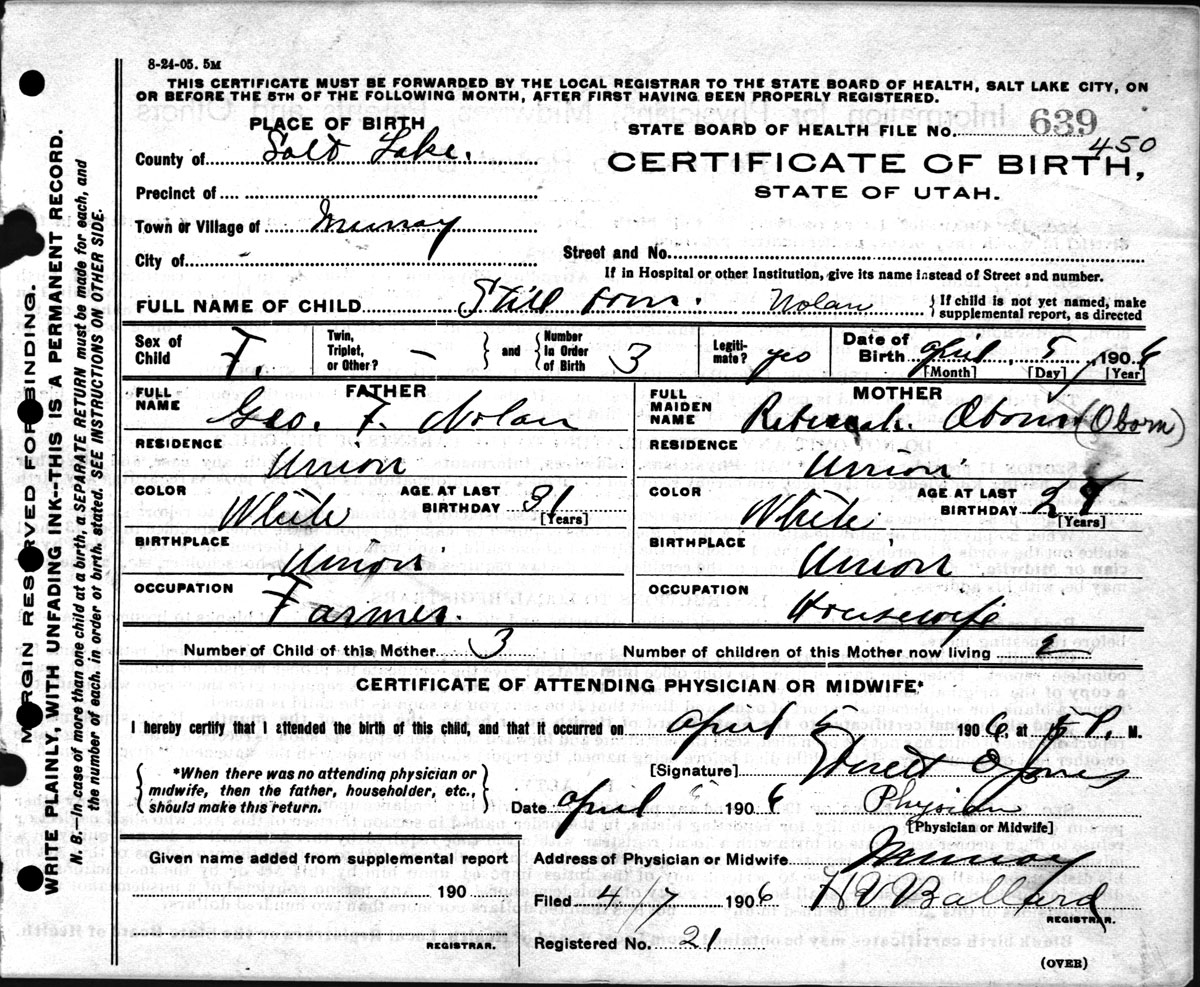 8-24-05. 5M
THIS CERTIFICATE MUST BE FORWARDED BY THE LOCAL REGISTRAR TO THE STATE BOARD OF HEALTH, SALT LAKE CITY, ON
OR BEFORE THE 5TH OF THE FOLLOWING MONTH, AFTER FIRST HAVING BEEN PROPERLY REGISTERED.
PLACE OF BIRTH
STATE BOARD OF HEALTH FILE NO. 639
450
County of Salt Lake.
CERTIFICATE OF BIRTH,
STATE OF UTAH.
Precinct of
Town or Village of Murray
Street and No.
City of
If in Hospital or other Institution, give its name instead of Street and number.
FULL NAME OF CHILD Still born. Nolan { If child is not yet named, make
supplemental report, as directed
Sex of Child F.
Twin, Triplet, or Other? –
} and {
Number in Order of Birth 3
Legiti-mate? yes
Date of Birth April 5, 1906
[Month] [Day] [Year]
FATHER
FULL NAME Geo. F. Nolan
RESIDENCE Union
COLOR White
AGE AT LAST BIRTHDAY 31
[Years]
BIRTHPLACE Union
OCCUPATION Farmer.
MOTHER
FULL MAIDEN NAME Oborn (Oborn)
RESIDENCE Union
COLOR White
AGE AT LAST BIRTHDAY
[Years]
BIRTHPLACE Union
OCCUPATION Housewife
Number of Child of this Mother 3
Number of children of this Mother now living 2
CERTIFICATE OF ATTENDING PHYSICIAN OR MIDWIFE*
I hereby certify that I attended the birth of this child, and that it occurred on April 5 1906, at P. M.
{ *When there was no attending physician or
midwife, then the father, householder, etc.,
should make this return. }
[Signature] Jones
Date April 1906
Physician
[Physician or Midwife]
Given name added from supplemental report
190
REGISTRAR.
Address of Physician or Midwife Murray
Filed 4/7 1906 H V Ballard
REGISTRAR.
Registered No. 21
(OVER)
MARGIN RESERVED FOR BINDING.
WRITE PLAINLY, WITH UNFADING INK---THIS IS A PERMANENT RECORD.
N. B.—In case of more than one child at a birth, a SEPARATE RETURN must be made for each, and
the number of each, in order of birth, stated. SEE INSTRUCTIONS ON OTHER SIDE.